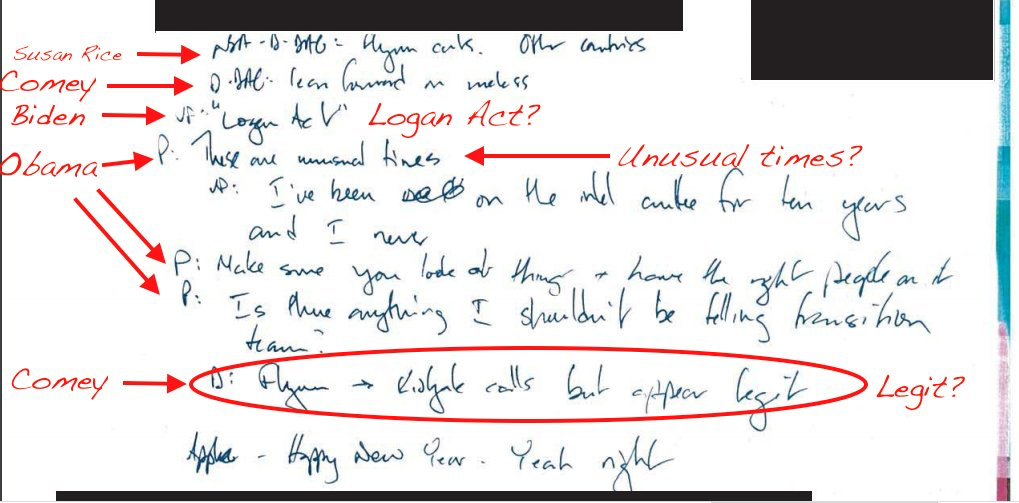 Susan Rice NSA-D-DAG: Flynn cuts. Other countries
Comey D-DAG: lean forward on unclass
Biden VP: "Logan Act" Logan Act?
Obama P: These are unusual times Unusual times?
VP: I've been on the intel cmtee for ten years
and I never
P: Make sure you look at things + have the right people on it
P: Is there anything I shouldn't be telling transition
team?
Comey D: Flynn → Kislyak calls but appear legit Legit?
Happy New Year. Yeah right